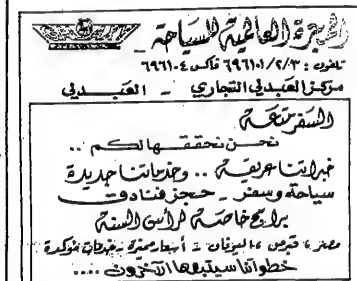 الجزيرة العالمية للسياحة
تلفون : ٦٩٦١٠١/٢/٣ فاكس ٦٩٦١٠٤
مركز العبدلي التجاري - العبدلي
السفر متعة
نحن نحققها لكم ..
خبراتنا عريقة .. وخدماتنا جديدة
سياحة وسفر - حجز فنادق
برامج خاصة لرأس السنة
مصر ، قبرص ، اليونان - أسعار مميزة - خدمات مؤكدة
خطواتنا سيتبعها الآخرون ....